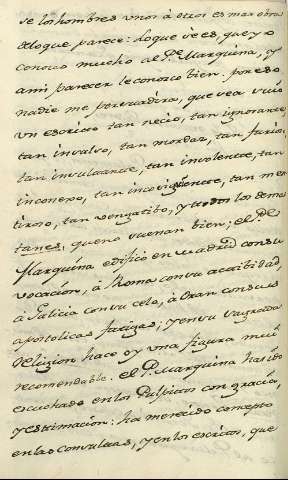 se los hombres unos à otros es mas obra
de lo que parece: lo que ès es, que yo
conozco mucho al Pe. Marquina, y
a mi parecer le conozco bien. por eso
nadie me persuadirà, que sea suio
un escrito tan necio, tan ignorante,
tan insulso, tan mordaz, tan furio-
tan insultante, tan insolente, tan
inconexo, tan inconsiguiente, tan men
tiroso, tan vengatibo, y todos los demas
tanes, que no suenan bien; el Pe.
Marquina edificò en Madrid con su
vocacion, à Roma con su actibidad,
à Galicia con su celo, à Oran con sus
apostolicas fatigas; y en su sagrada
religion hace oy una figura mui
recomendable. el P. Marquina ha sido
escuchado en los Pulpitos con gracia,
y estimacion: ha merecido concepto
en las consultas, y en los escritos, que